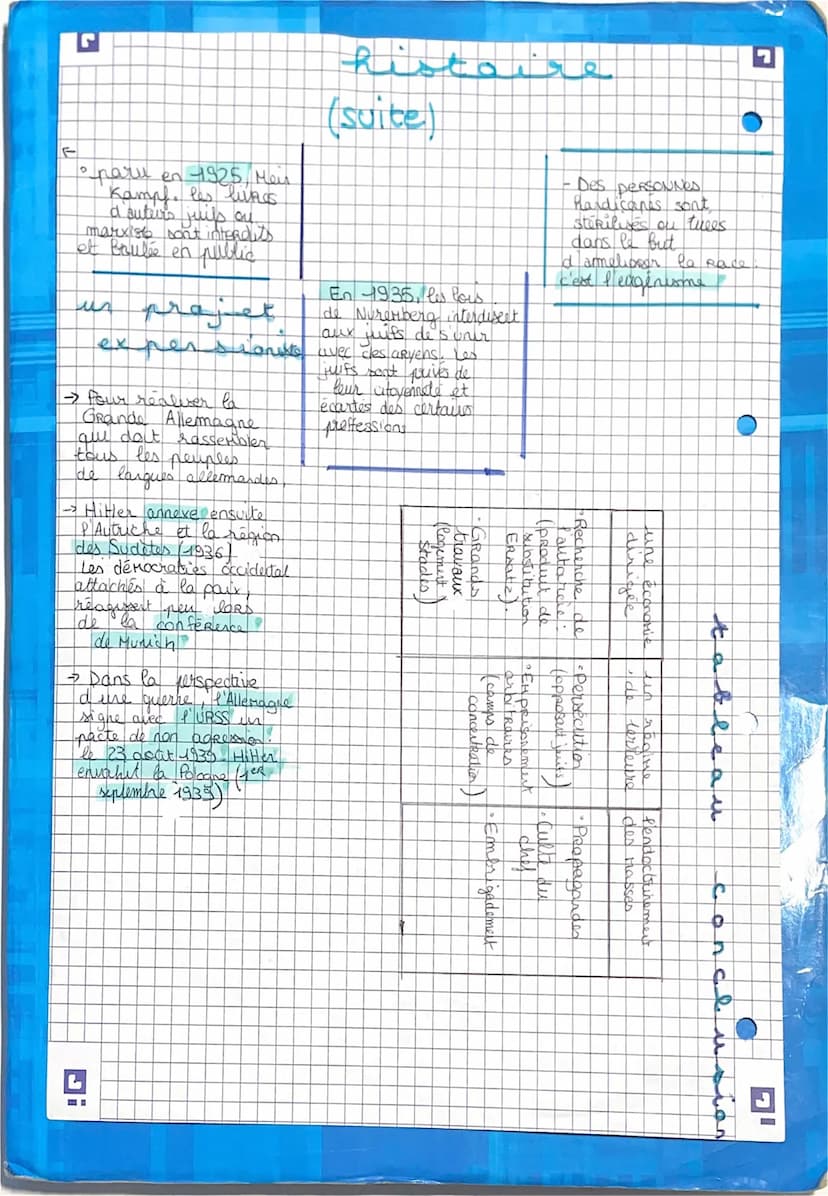 histoire
(suite)
° paru en 1925, Mein
Kampf. les livres
d'auteurs juifs ou
marxiste sont interdits
et brulée en public
un projet
expensioniste
→ Pour réaliser la
Grande Allemagne
qui doit rassembler
tous les peuples
de langues allemandes,
→ Hitler annexe ensuite
l'Autriche et la région
des Sudètes (1936)
Les démocraties occidental
attachés à la paix,
réagissent peu lors
de la conférence
de Munich
→ Dans la perspective
d'une guerre, l'Allemagne
signe avec l'URSS un
pacte de non agression.
le 23 août 1939. Hitler
envahit la Pologne (1er
septembre 1939)
En 1935, les lois
de Nuremberg interdisent
aux juifs de s'unir
avec des aryens. Les
juifs sont privés de
leur citoyenneté et
écartés des certains
proffessions
- Des personnes
handicapés sont
stérilisés ou tuées
dans le but
d'ameliorer la race :
c'est l'eugénisme
tableau conclusion
une économie
dirigée
un régime
de terreure
l'endoctrinement
des masses
· Recherche de
l'autarcie :
(produit de
substitution
Ersatz).
· Grands
travaux
(logement
stades)
· Persécution
(opposant juifs)
° Emprisonnement
arbitraires
(camps de
concentration)
· Propagandes
· Culte du
chef
· Embrigadement